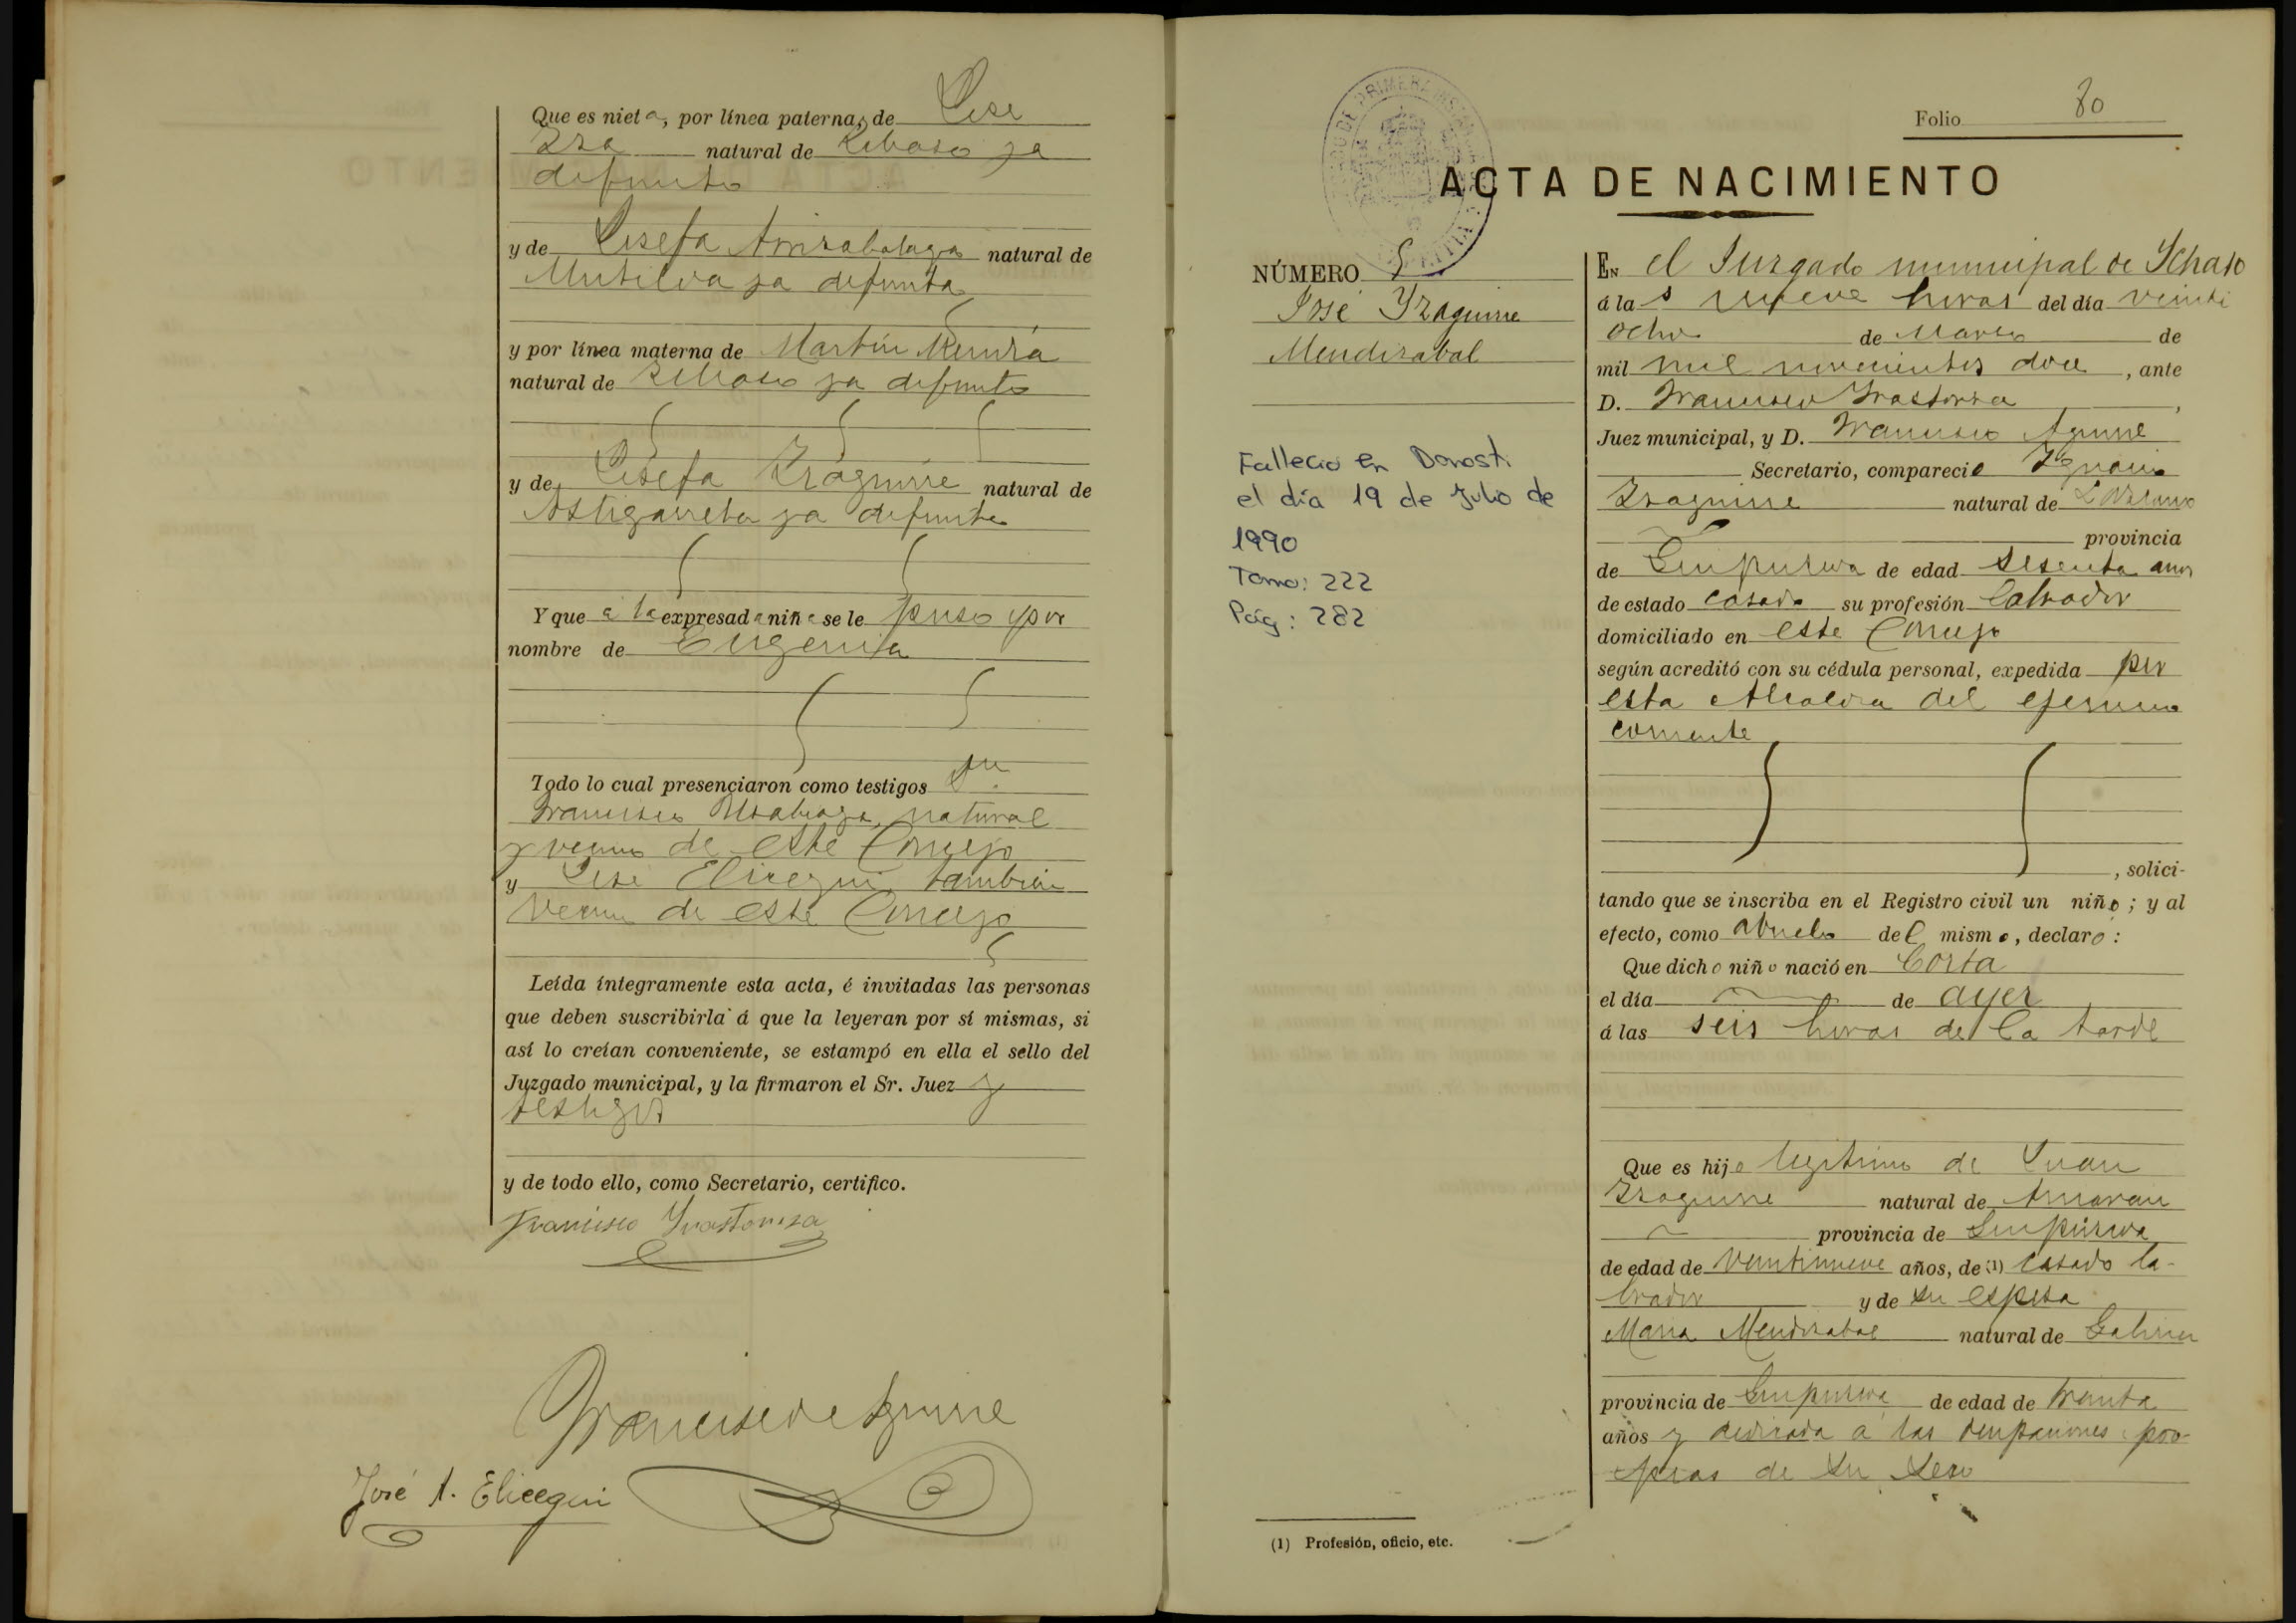 Que es nieta, por línea paterna, de José
Iza natural de Ichaso ya
defunto
y de Josefa Arrizabalaga natural de
Mutiloa ya defunta
y por línea materna de Martín
natural de Ichaso ya defunto
y de Josefa Izaguirre natural de
Astigarreta ya defunta
Y que a la expresada niña se le puso por
nombre de Eugenia
Todo lo cual presenciaron como testigos Dn.
Francisco Usabiaga, natural
y vecino de este Concejo
y José Elicegui, también
vecino de este Concejo
Leída íntegramente esta acta, é invitadas las personas
que deben suscribirla á que la leyeran por sí mismas, si
así lo creían conveniente, se estampó en ella el sello del
Juzgado municipal, y la firmaron el Sr. Juez y
testigos
y de todo ello, como Secretario, certifico.
Francisco Irastorza
Francisco de Aguirre
José A. Elicegui
Folio 80
JUZGADO DE PRIMERA INSTANCIA
ACTA DE NACIMIENTO
NÚMERO 5
José Yzaguirre
Mendizabal
Fallecio en Donosti
el día 19 de Julio de
1990
Tomo: 222
Pág: 282
EN el Juzgado municipal de Ychaso
á las nueve horas del día veinti
ocho de Marzo de
mil mil novecientos doce, ante
D. Francisco Irastorza,
Juez municipal, y D. Francisco Aguirre
Secretario, compareció Ignacio
Izaguirre natural de Lazcano
provincia
de Guipuzcoa de edad sesenta años
de estado casado su profesión labrador
domiciliado en este Concejo
según acreditó con su cédula personal, expedida por
esta Alcaldia del ejercicio
corriente
, solici-
tando que se inscriba en el Registro civil un niño; y al
efecto, como abuelo del mismo, declaró:
Que dicho niño nació en Corta
el día de ayer
á las seis horas de la tarde
Que es hijo legitimo de Juan
Izaguirre natural de Arriaran
provincia de Guipúzcoa
de edad de veintinueve años, de (1) casado la-
brador y de su esposa
Maria Mendizabal natural de Gabiria
provincia de Guipuzcoa de edad de treinta
años y dedicada a las ocupaciones pro-
pias de su sexo
(1) Profesión, oficio, etc.